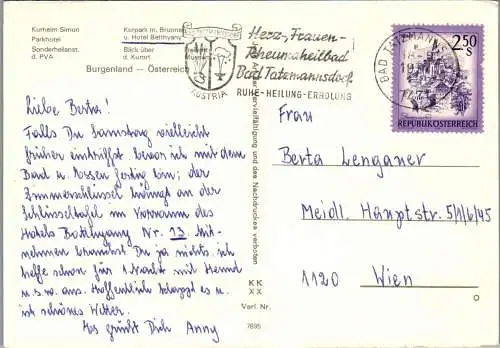 Kurheim Simon
Parkhotel
Sonderheilanst.
d. PVA
Kurpark m. Brunnen
u. Hotel Batthyany
Blick über
d. Kurort
Burgenland — Österreich
Liebe Berta!
Falls Du Samstag vielleicht
früher eintriffst bevor ich mit dem
Bad u. Essen fertig bin; der
Zimmerschlüssel hängt an der
Schlüsseltafel im Vorraum des
Hotels Batthyany Nr. 13. Mit-
nehmen brauchst Du ja nichts, ich
helfe schon für 1 Nacht mit Hemd
u.s.w. aus. Hoffentlich klappt es u.
ist schönes Wetter.
Es grüßt Dich Anny
Verl. Nr.
7695
KK
XX
Vervielfältigung und des Nachdruckes verboten
AUSTRIA
Herz-, Frauen-
Rheumaheilbad
Bad Tatzmannsdorf
RUHE-HEILUNG-ERHOLUNG
BAD TATZMANNSD
2.50
S
REPUBLIK ÖSTERREICH
Frau
Berta Lenganer
Meidl. Hauptstr. 5/1/6/45
1120 Wien